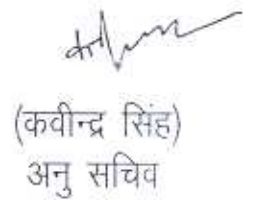 (कवीन्द्र सिंह)
अनु सचिव